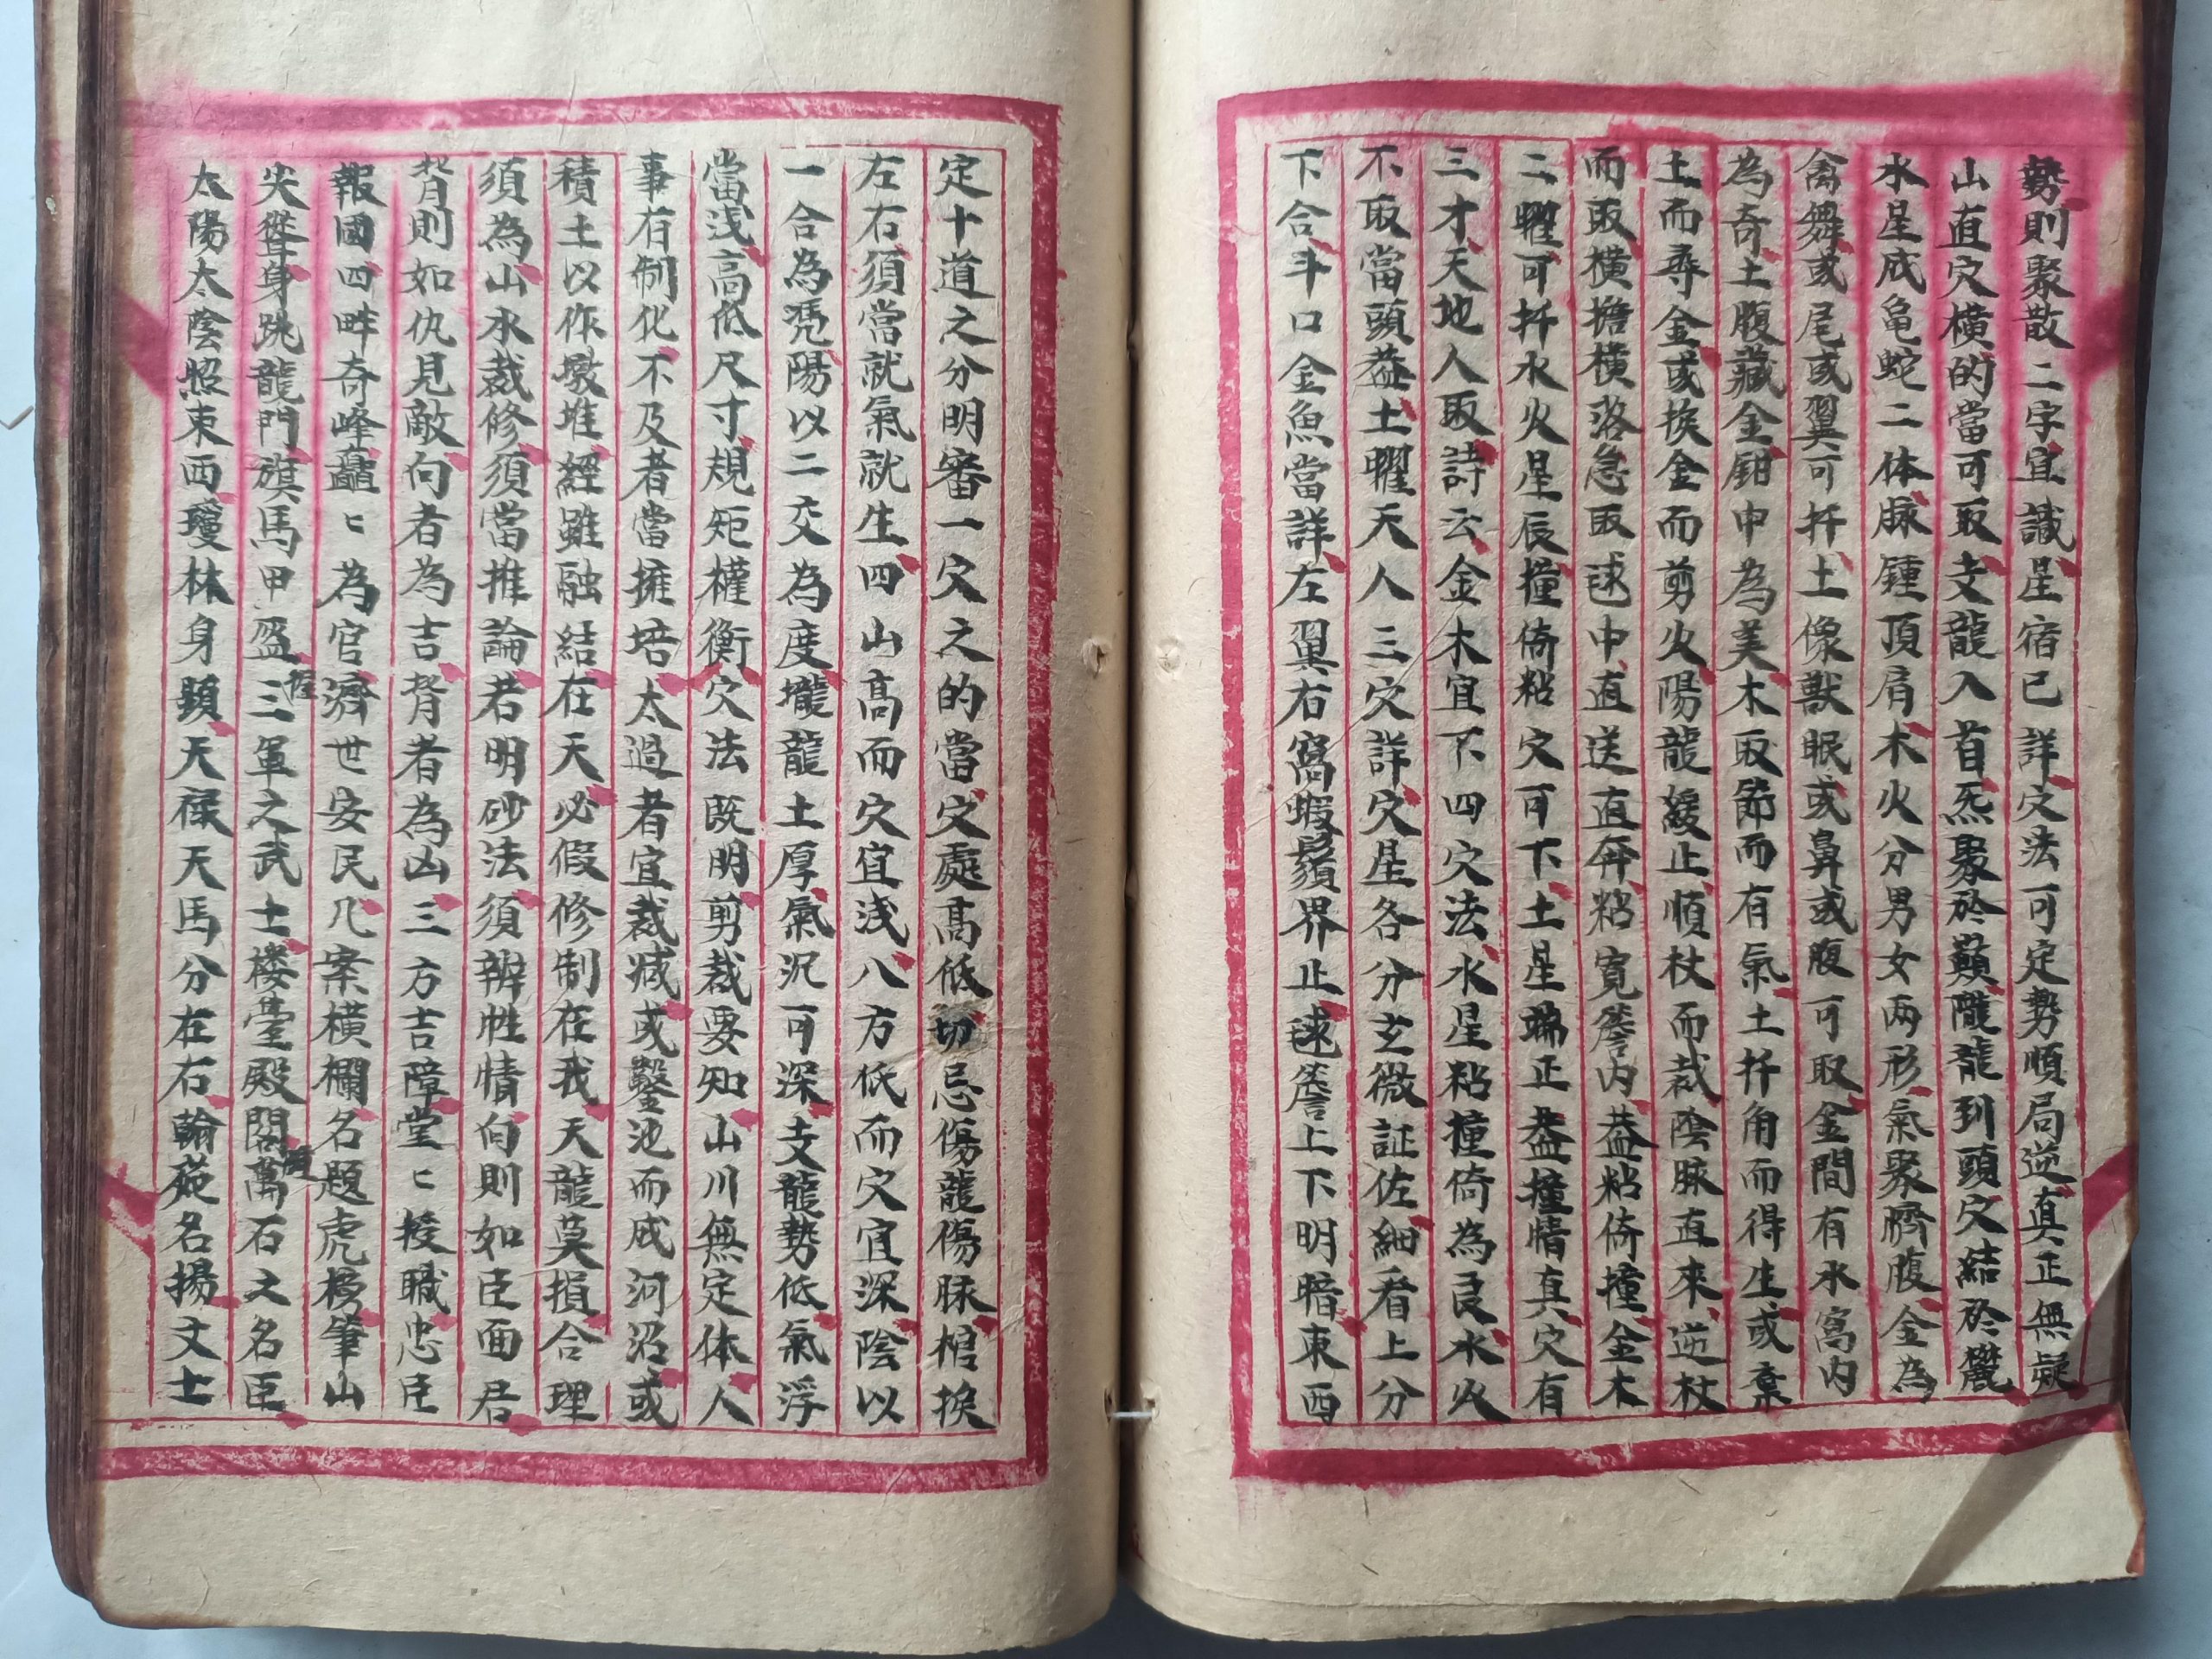 勢則聚散二字宜識星宿已詳穴法可定勢順局逆真正無疑
山直穴横的當可取支龍入首炁聚於巔隴龍到頭穴結於麓
水星成龟蛇二体脉鍾頂肩木火分男女兩形氣聚臍腹金為
禽舞或尾或翼可扦土像獸眠或鼻或腹可取金間有水窩内
為奇土腹藏金鉗中為美木取節而有氣土扦角而得生或棄
土而尋金或挨金而剪火陽龍緩止順杖而裁陰脉直來逆杖
而取横擔横落急取逑中直送直奔粘寬簷内葢粘倚撞金木
二曜可扦水火星辰撞倚粘穴可下土星端正葢撞情真穴有
三才天地人取詩云金木宜下四穴法水星粘撞倚為良水火
不取當頭葢土曜天人三穴詳穴星各分玄微証佐細看上分
下合斗口金魚當詳左翼右窩蝦鬚界止逑簷上下明暗東西
定十道之分明審一穴之的當穴處高低切忌傷龍傷脉棺挨
左右須當就氣就生四山高而穴宜浅八方低而穴宜深陰以
一合為凴陽以二交為度壠龍土厚氣沉可深支龍勢低氣浮
當浅高低尺寸規矩權衡穴法既明剪裁要知山川無定体人
事有制化不及者當擁培太過者宜裁减或鑿池而成河沼或
積土以作墩堆經雖融結在天必假修制在我天龍莫損合理
須為山水裁修須當推論若明砂法須辨性情向則如臣面君
背則如仇見敵向者為吉背者為凶三方吉障堂〻授職忠臣
報國四畔奇峰矗〻為官濟世安民几案横欄名題虎榜筆山
尖聳身跳龍門旗馬甲盔三軍之武士楼臺殿閣萬石之名臣
太陽太陰照東西瓊林身顯天祿天馬分在右翰苑名揚文士